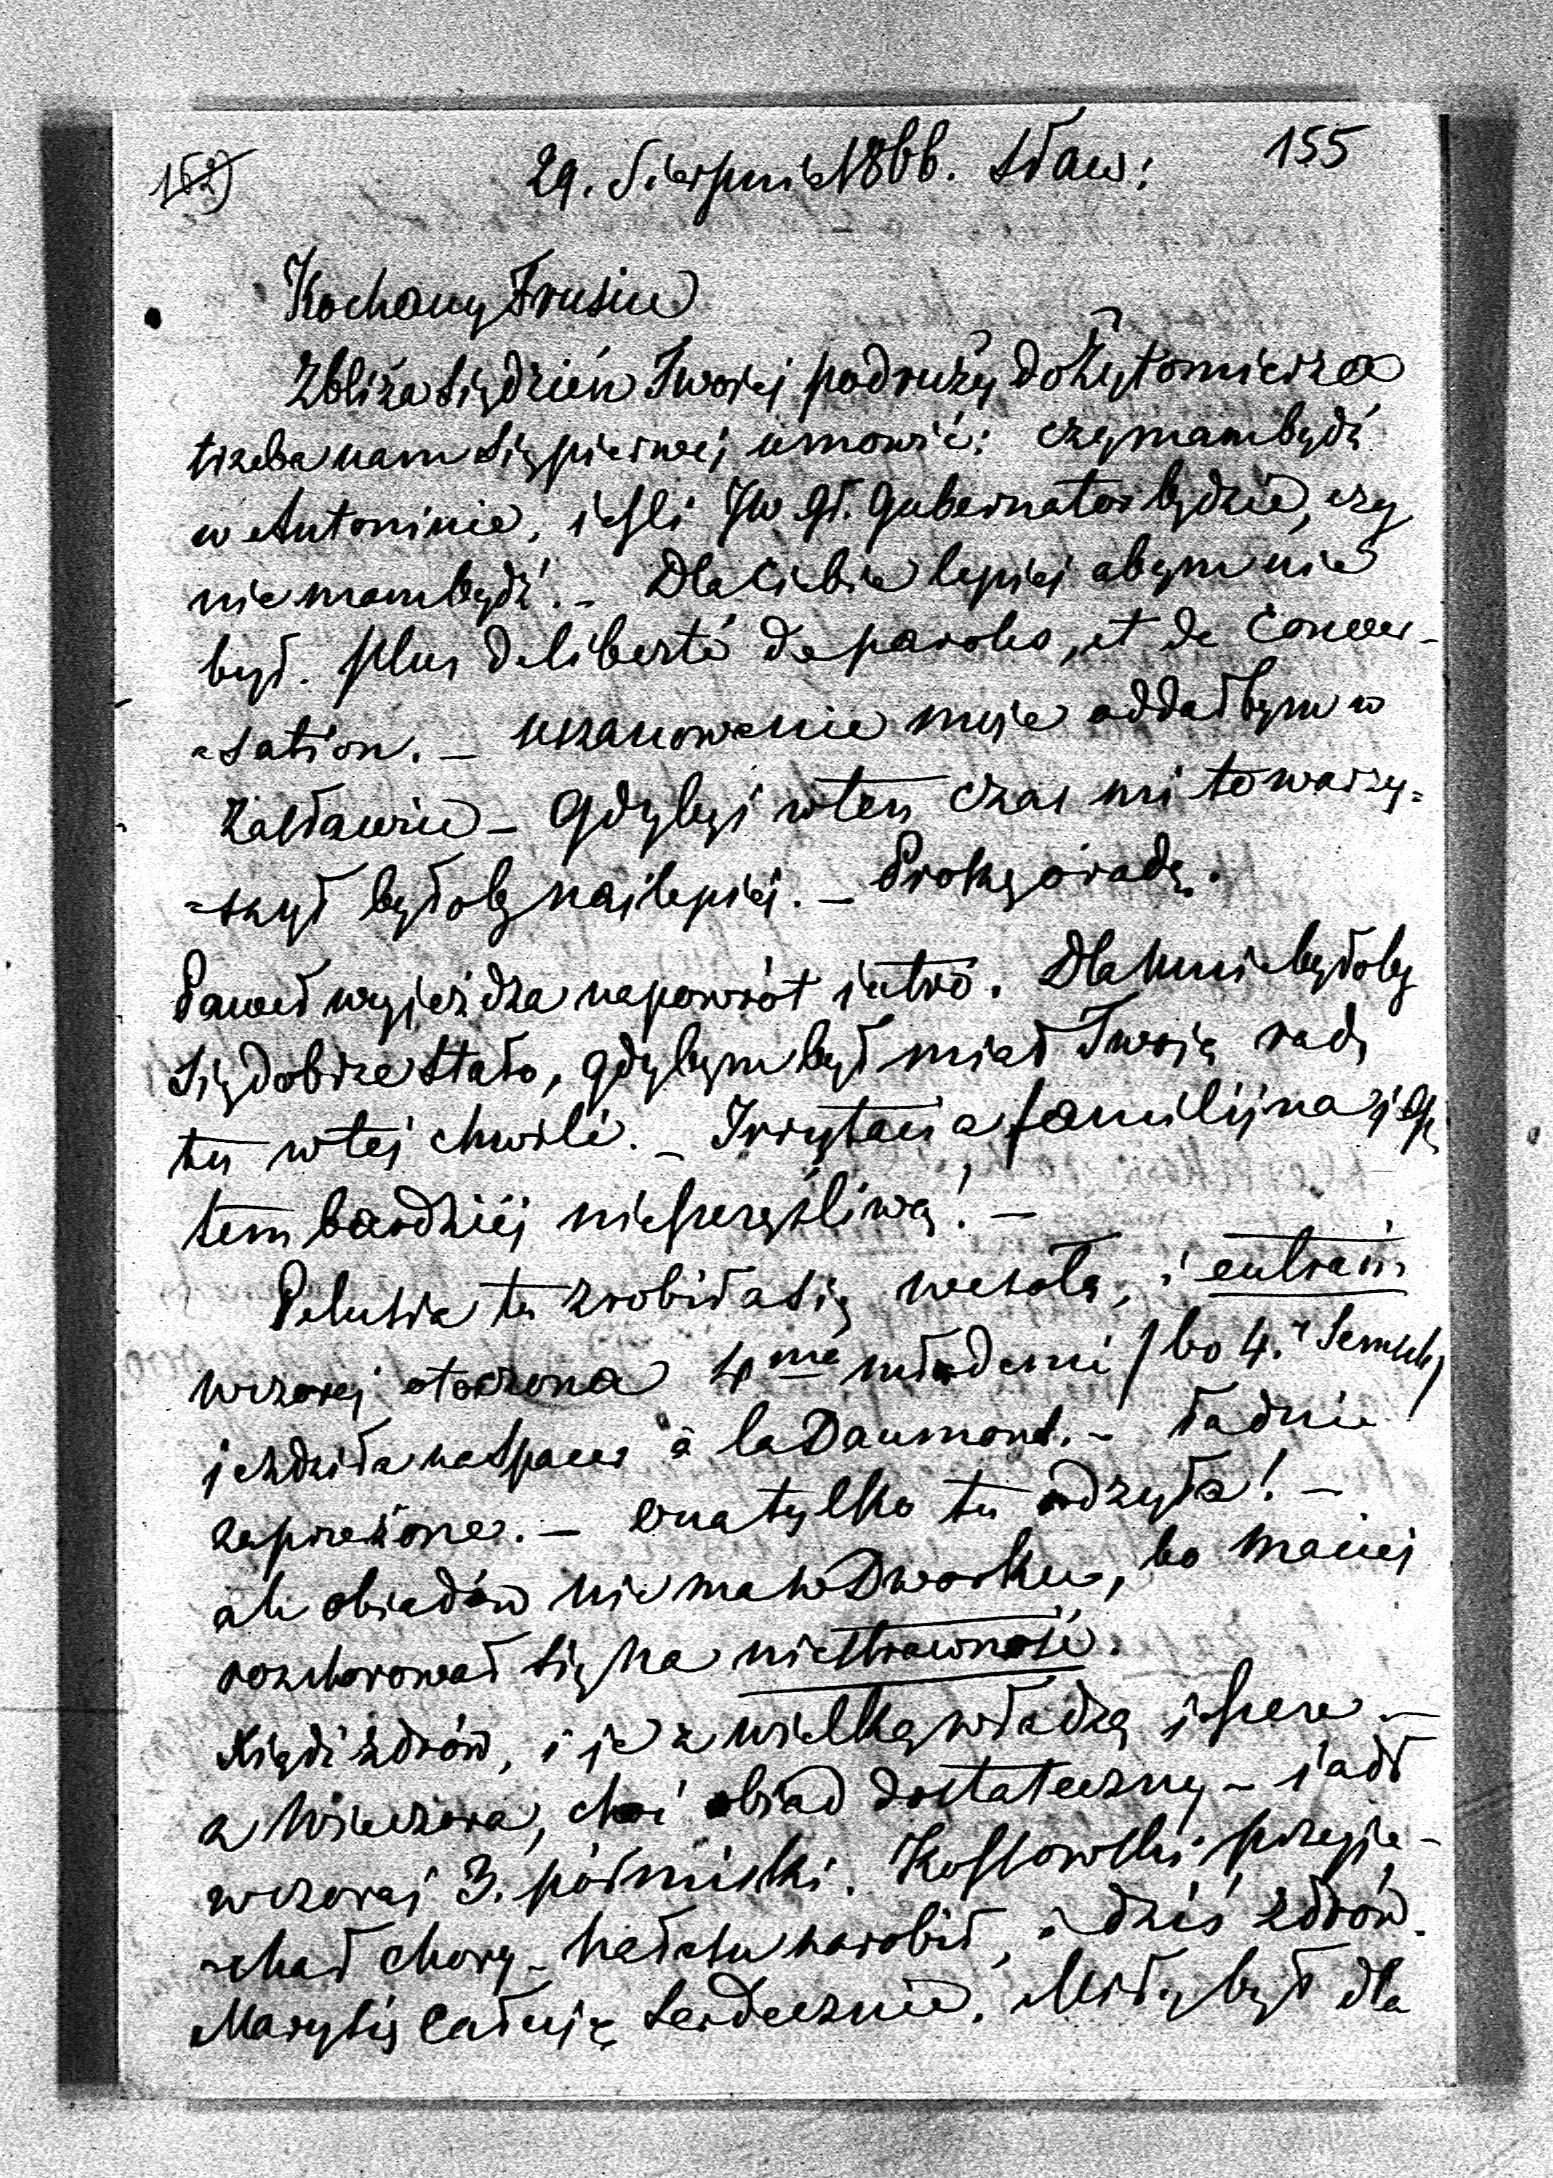 155
29. Sierpnia 1866. Sław:
Kochany Frusiu
Zbliża się dzień Twojej podruży do Żytomierza
trzeba nam się pierwej umowić: czy mam bydź
w Antoninie, jeśli JW. Gł. Gubernator będzie, czy
nie mam bydź. – Dla Ciebie lepiej abym nie
był. Plus de liberté de paroles, et de conver-
-sation. – uszanowanie moje oddałbym w
Zasławiu – Gdybyś w ten czas mi towarzy=
=szył byłoby najlepiej. – Proszę o radę.
Paweł wyjeżdza napowrót jutro. Dla mnie byłoby
się dobrze stało, gdybym był miał Twoją radę
tu w tej chwili. – Irrytacia familijna jest
tem bardziej nieszczęśliwą! –
Pelusia tu zrobiła się wesołą, i entrain
wczoraj otoczona 4me młodemi / bo 4.
jezdziła na spacer à la Daumont. – Ładnie
zaprzeżone. – ona tylko tu odżyła! –
ale obiadów nie ma w Dworku, bo Maciej
rozchorował się na niestrawność.
Xiądz zdrów, i je z wielką władzą jeszcze
z wieczora, choć obiad dostateczny – jadł
wczoraj 3. półmiski. Kossowski przyje-
-chał chory – hałasu narobił, i dziś zdrów.
Marysię całuję serdecznie. Miły był dla